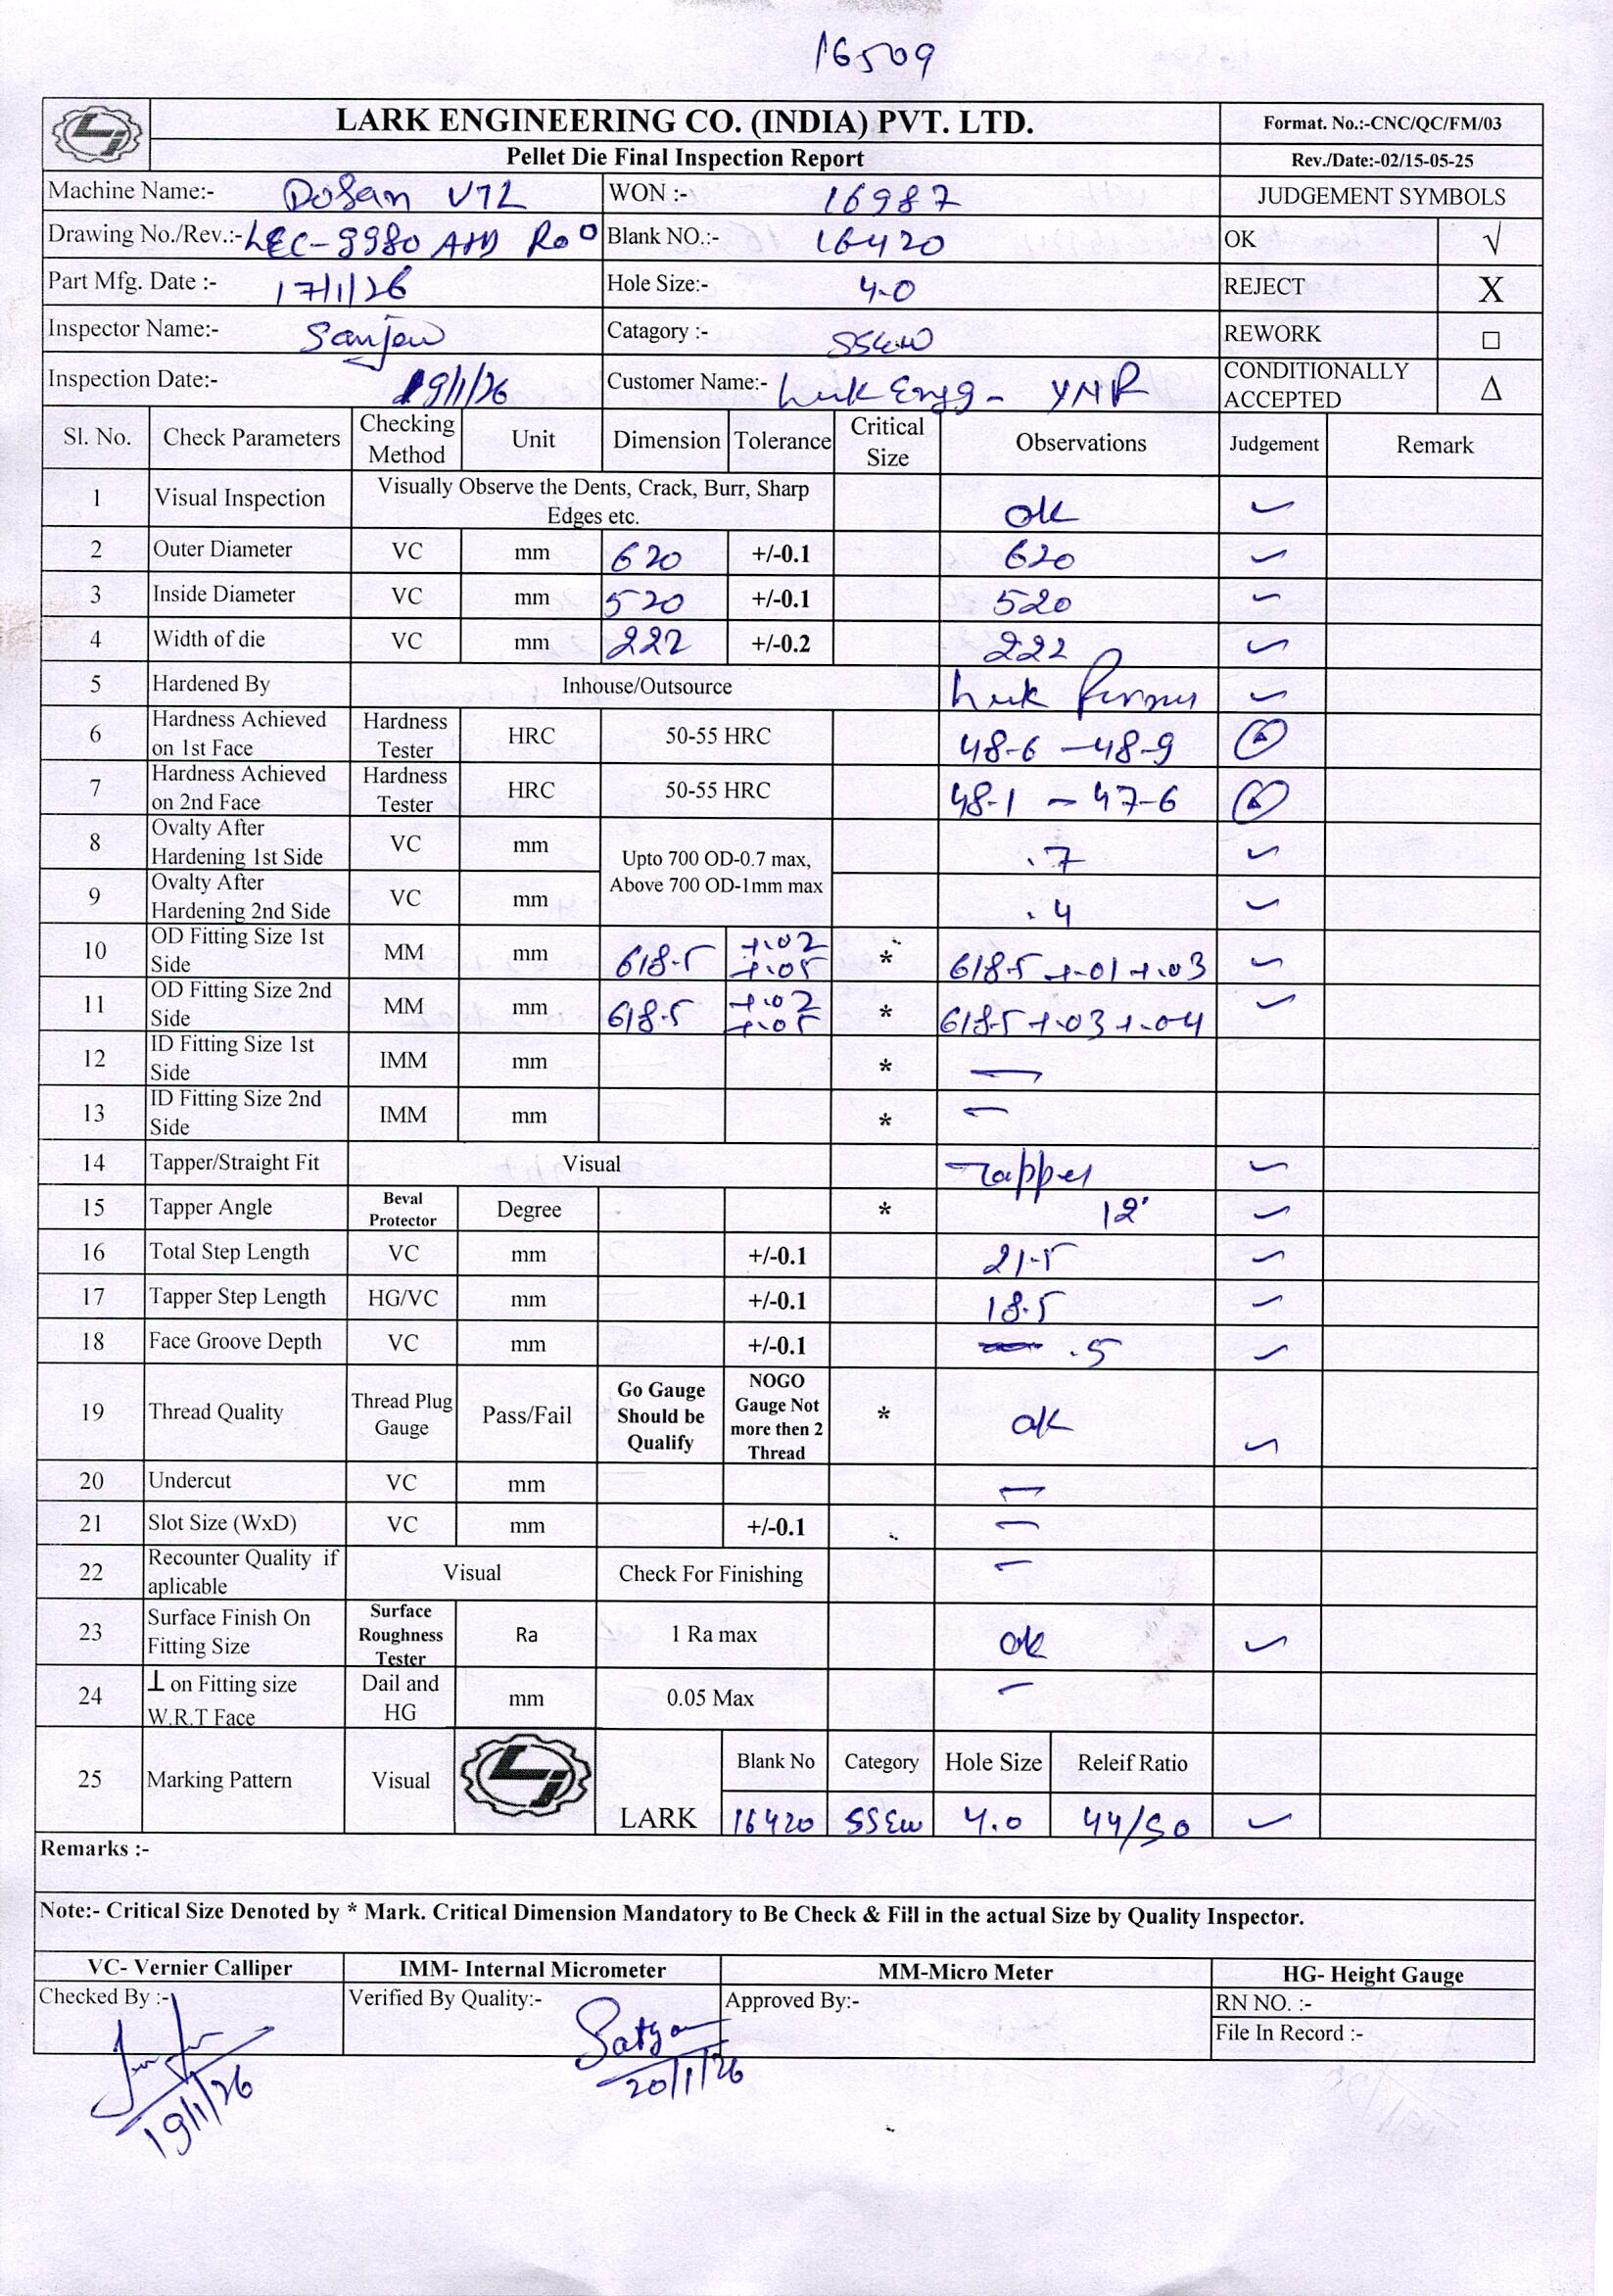 16509
LARK ENGINEERING CO. (INDIA) PVT. LTD.
Format. No.:-CNC/QC/FM/03
Pellet Die Final Inspection Report
Rev./Date:-02/15-05-25
Machine Name:- Dosan VTL WON :- 16987 JUDGEMENT SYMBOLS
Drawing No./Rev.:- LEC-9980 Blank NO.:- 16420 OK √
Part Mfg. Date :- 17/1/26 Hole Size:- 4.0 REJECT X
Inspector Name:- Sanjeev Catagory :- SSEW REWORK □
Inspection Date:- 19/1/26 Customer Name:- Engg- YNR CONDITIONALLY ACCEPTED Δ
Sl. No. Check Parameters Checking Method Unit Dimension Tolerance Critical Size Observations Judgement Remark
1 Visual Inspection Visually Observe the Dents, Crack, Burr, Sharp Edges etc. ok ✓
2 Outer Diameter VC mm 620 +/-0.1 620 ✓
3 Inside Diameter VC mm 520 +/-0.1 520 ✓
4 Width of die VC mm 222 +/-0.2 222 ✓
5 Hardened By Inhouse/Outsource ✓
6 Hardness Achieved on 1st Face Hardness Tester HRC 50-55 HRC 48-6 - 48-9 Δ
7 Hardness Achieved on 2nd Face Hardness Tester HRC 50-55 HRC 48-1 - 47-6 Δ
8 Ovalty After Hardening 1st Side VC mm Upto 700 OD-0.7 max, Above 700 OD-1mm max .7 ✓
9 Ovalty After Hardening 2nd Side VC mm .4 ✓
10 OD Fitting Size 1st Side MM mm 618.5 +.02 +.05 * 618.5 +.01 +.03 ✓
11 OD Fitting Size 2nd Side MM mm 618.5 +.02 +.05 * 618.5 +.03 +.04 ✓
12 ID Fitting Size 1st Side IMM mm * —
13 ID Fitting Size 2nd Side IMM mm * —
14 Tapper/Straight Fit Visual Tapper ✓
15 Tapper Angle Beval Protector Degree * 12° ✓
16 Total Step Length VC mm +/-0.1 21.5 ✓
17 Tapper Step Length HG/VC mm +/-0.1 18.5 ✓
18 Face Groove Depth VC mm +/-0.1 .5 ✓
19 Thread Quality Thread Plug Gauge Pass/Fail Go Gauge Should be Qualify NOGO Gauge Not more then 2 Thread * ok ✓
20 Undercut VC mm —
21 Slot Size (WxD) VC mm +/-0.1 —
22 Recounter Quality if aplicable Visual Check For Finishing —
23 Surface Finish On Fitting Size Surface Roughness Tester Ra 1 Ra max ok ✓
24 ⊥ on Fitting size W.R.T Face Dail and HG mm 0.05 Max —
25 Marking Pattern Visual LARK Blank No Category Hole Size Releif Ratio
16420 SSEW 4.0 44/50 ✓
Remarks :-
Note:- Critical Size Denoted by * Mark. Critical Dimension Mandatory to Be Check & Fill in the actual Size by Quality Inspector.
VC- Vernier Calliper IMM- Internal Micrometer MM-Micro Meter HG- Height Gauge
Checked By :- Verified By Quality:- Approved By:- RN NO. :-
File In Record :-
Satya
19/1/26 20/1/26